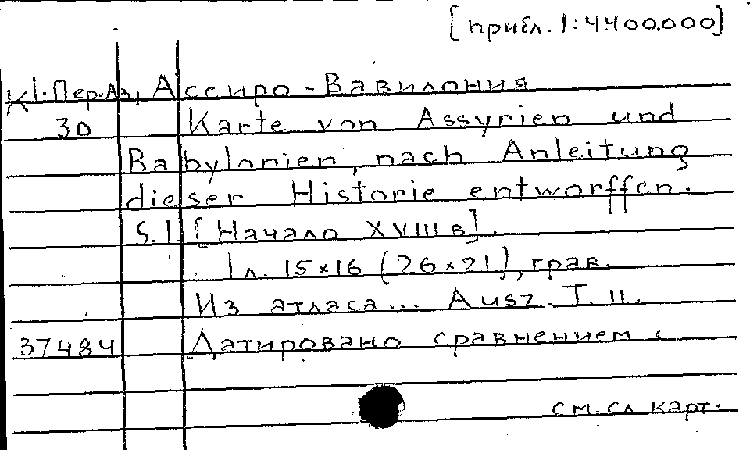 [прибл. 1:4400.000]
К1.Пер.Аз, Ассиро-Вавилония
30 Karte von Assyrien und
Babylonien, nach Anleitung
dieser Historie entworffen.
S.l [Начало XVIII в].
1 л. 15×16 (26×21), грав.
Из атласа... Ausz. T. II.
37484 Датировано сравнением с
см. сл карт.